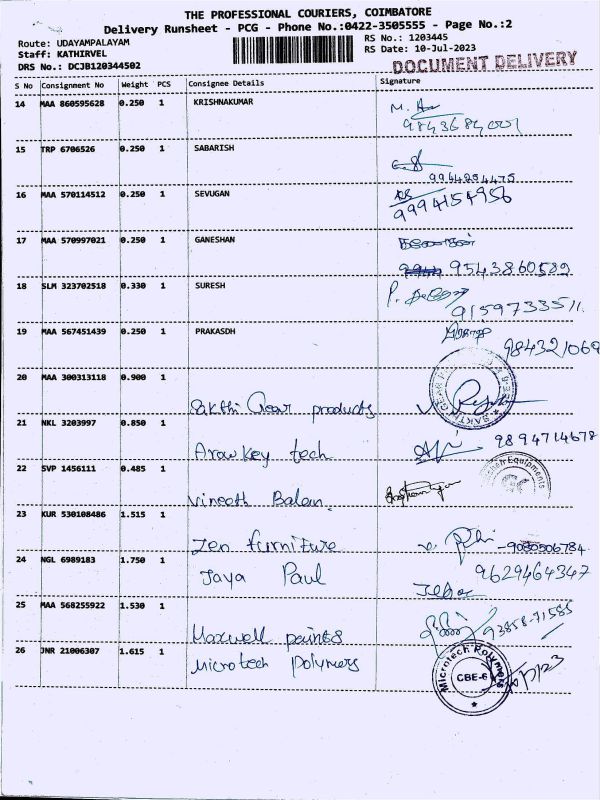 THE PROFESSIONAL COURIERS, COIMBATORE
Delivery Runsheet - PCG - Phone No.:0422-3505555 - Page No.:2
Route: UDAYAMPALAYAM
Staff: KATHIRVEL
DRS No.: DCJB120344502
RS No.: 1203445
RS Date: 10-Jul-2023
DOCUMENT DELIVERY
S No Consignment No Weight PCS Consignee Details Signature
14 MAA 860595628 0.250 1 KRISHNAKUMAR
15 TRP 6706526 0.250 1 SABARISH
9944894475
16 MAA 570114512 0.250 1 SEVUGAN
9994154956
17 MAA 570997021 0.250 1 GANESHAN
9543860589
18 SLM 323702518 0.330 1 SURESH
9159733511.
19 MAA 567451439 0.250 1 PRAKASDH
984321069
20 MAA 300313118 0.900 1
Sakthi Gear products
21 NKL 3203997 0.850 1
Arow key tech 9894714678
22 SVP 1456111 0.485 1
Equipments
Vineeth Balan
23 KUR 530108486 1.515 1
Zen furniture
24 NGL 6989183 1.750 1
Jaya Paul 9629464347
25 MAA 568255922 1.530 1
Maxwell paints 93858-71585
26 JNR 21006307 1.615 1
Microtech Polymers
Microtech Polymers
CBE-6